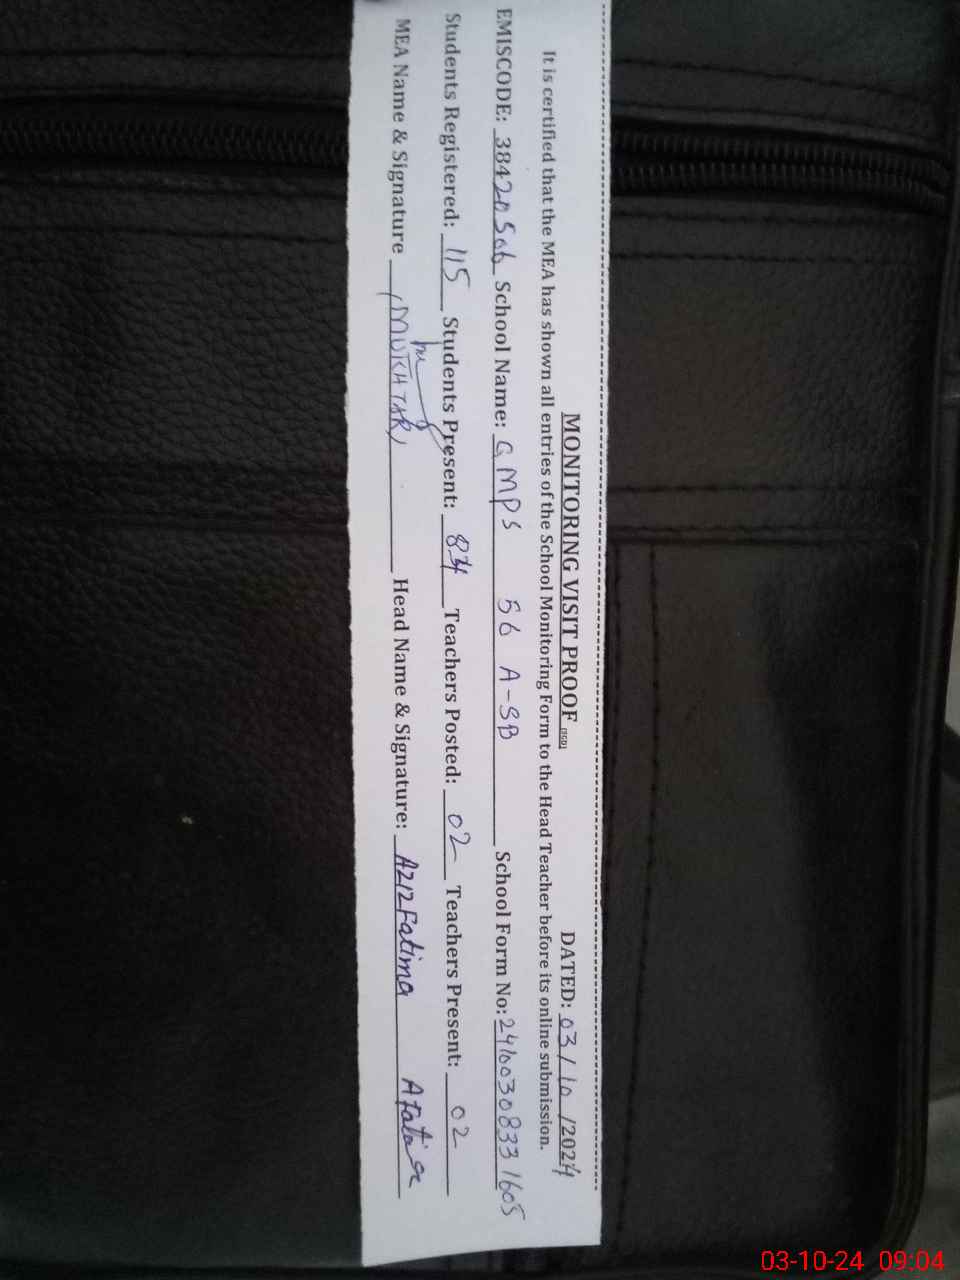 MONITORING VISIT PROOF (SGD) DATED: 03/10/2024
It is certified that the MEA has shown all entries of the School Monitoring Form to the Head Teacher before its online submission.
EMISCODE: 38420506 School Name: GMPS 56 A-SB School Form No: 2410030833 1605
Students Registered: 115 Students Present: 84 Teachers Posted: 02 Teachers Present: 02
MEA Name & Signature (MUKHTAR) Head Name & Signature: Aziz Fatima
03-10-24 09:04